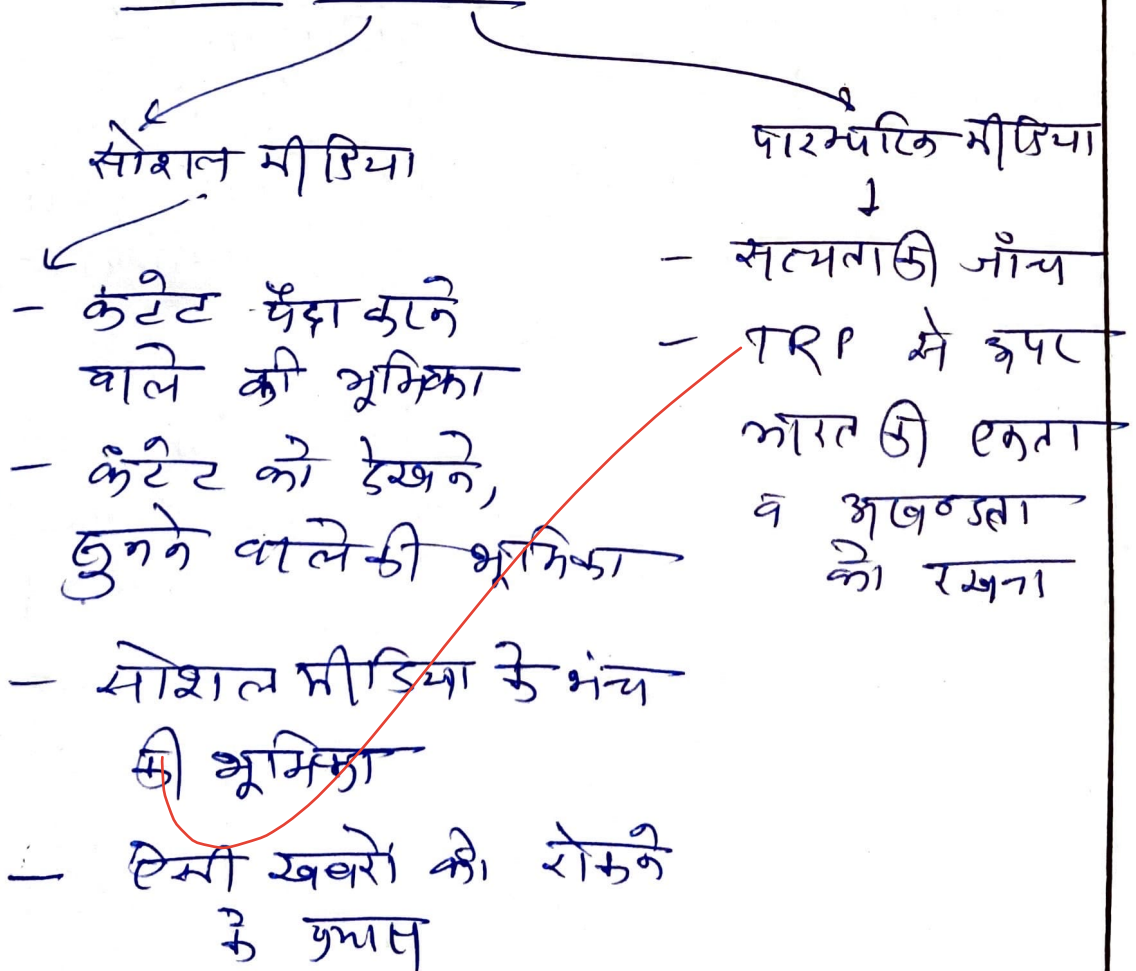 सोशल मीडिया
- कंटेट पैदा करने
वाले की भूमिका
- कंटेट को देखने,
सुनने वाले की भूमिका
- सोशल मीडिया के मंच
की भूमिका
- ऐसी खबरों को रोकने
के प्रयास
पारम्परिक मीडिया
- सत्यता की जाँच
- TRP से ऊपर
भारत की एकता
व अखण्डता
को रखना